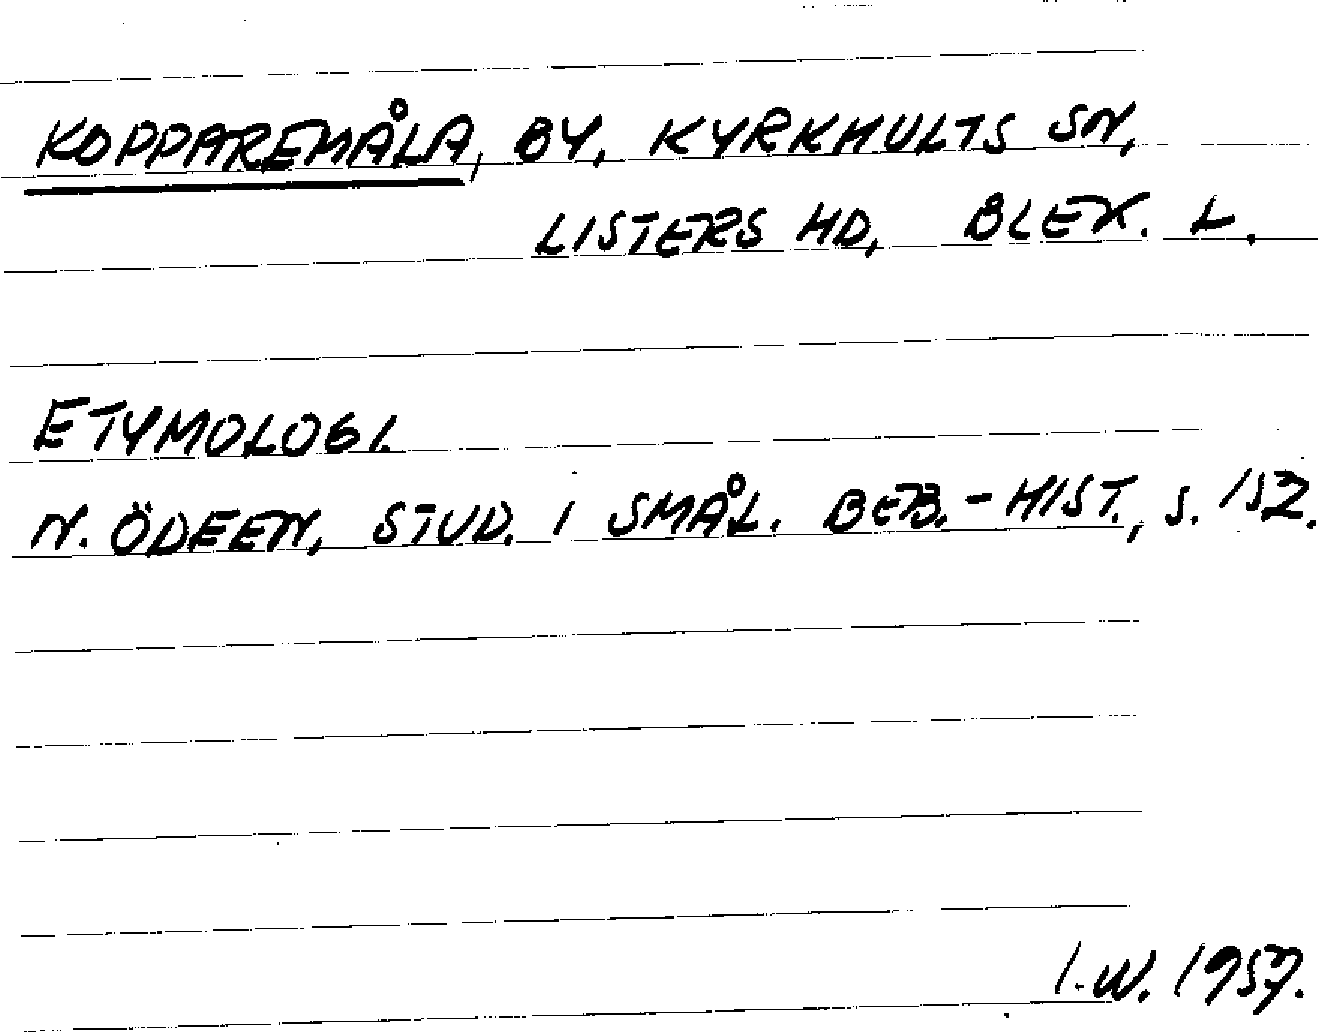 KOPPAREMÅLA, BY, KYRKHULTS SN,
LISTERS HD, BLEK. L.
ETYMOLOGI.
N. ÖDEEN, STUD. I SMÅL. BEB.-HIST., S. 152.
I.W. 1957.